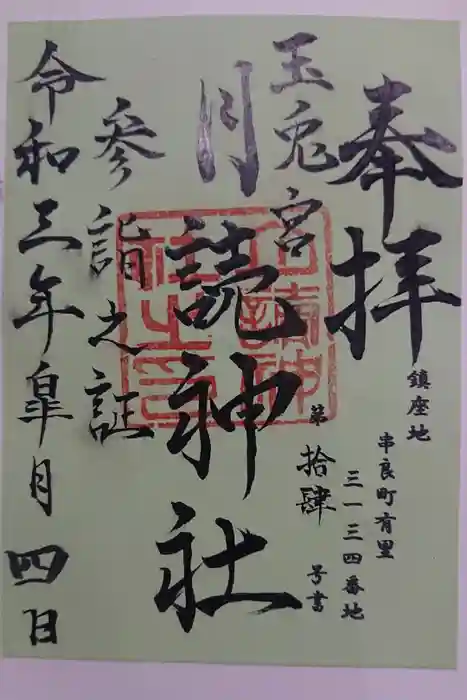 奉拝
鎮座地
串良町有里
三一三四番地
玉兎宮
第拾肆号書
月読神社
月讀神社之印
参詣之証
令和三年皐月四日